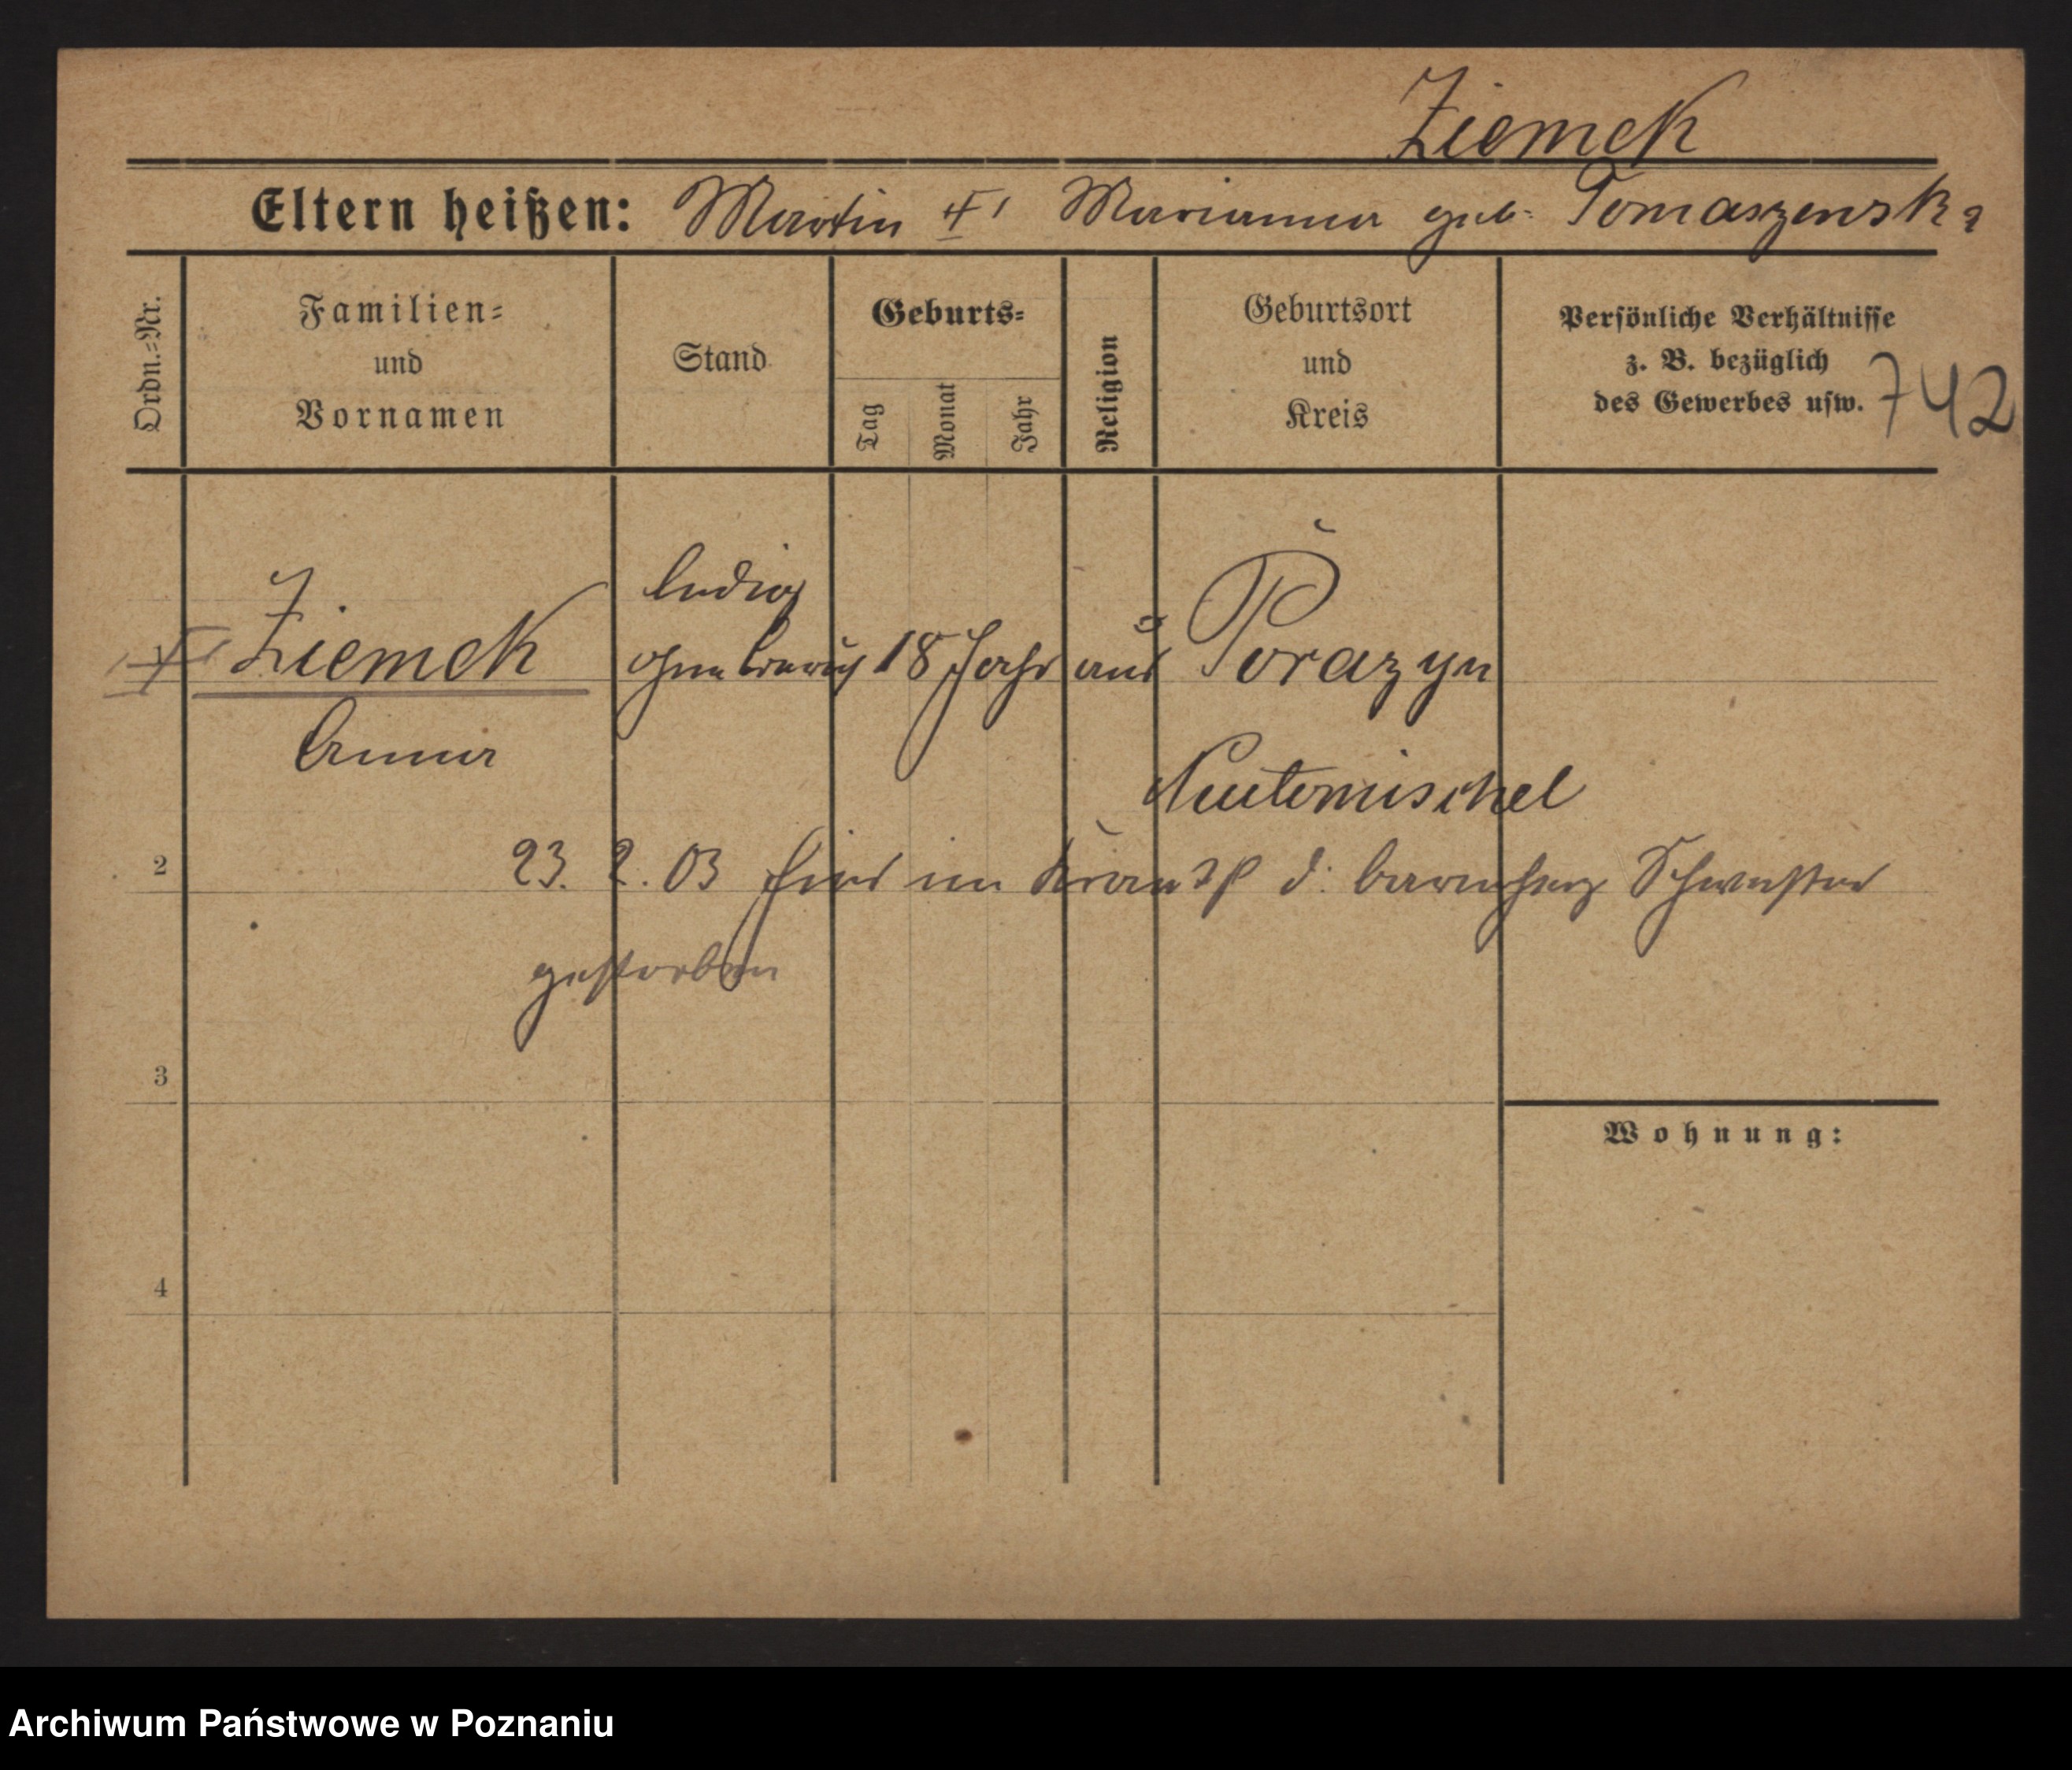 Ziemek
Eltern heißen: Martin † Marianna geb. Tomaszewska
Ordn.=Nr.
Familien=
und
Vornamen
Stand
Geburts=
Tag
Monat
Jahr
Religion
Geburtsort
und
Kreis
Persönliche Verhältnisse
z. B. bezüglich
des Gewerbes usw.
742
ledig
† Ziemek ohne 18 Jahr aus Porazyn
Anna
Neutomischel
2
23. 2. 03 hier im d. barmherz Schwester
gestorben
3
Wohnung:
4
Archiwum Państwowe w Poznaniu